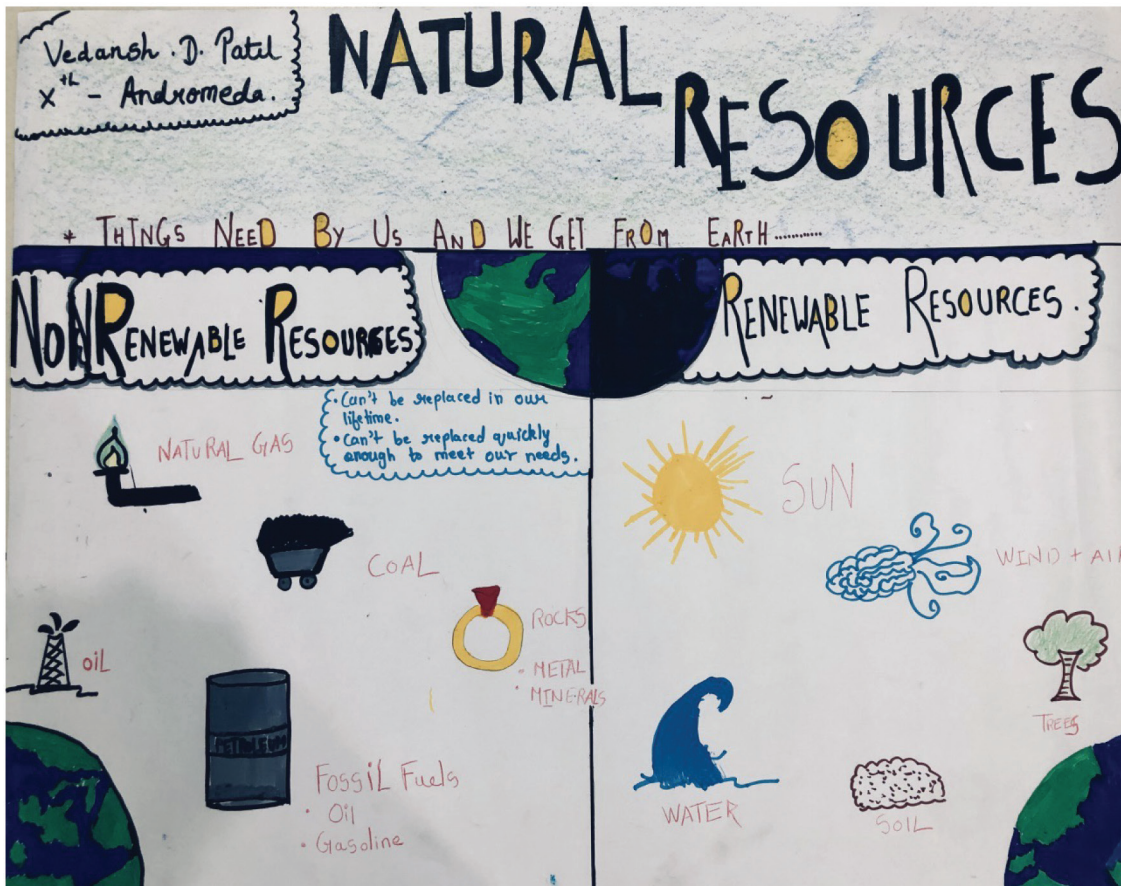 Vedansh . D. Patil
Xth - Andromeda.
NATURAL
RESOURCES
* THINGS NEED BY US AND WE GET FROM EARTH............
NON RENEWABLE RESOURCES
RENEWABLE RESOURCES.
• Can't be replaced in our
lifetime.
• Can't be replaced quickly
enough to meet our needs.
NATURAL GAS
COAL
ROCKS
• METAL
• MINERALS
OIL
PETROLEUM
FOSSIL Fuels
• Oil
• Gasoline
SUN
WIND + AIR
TREES
WATER
SOIL